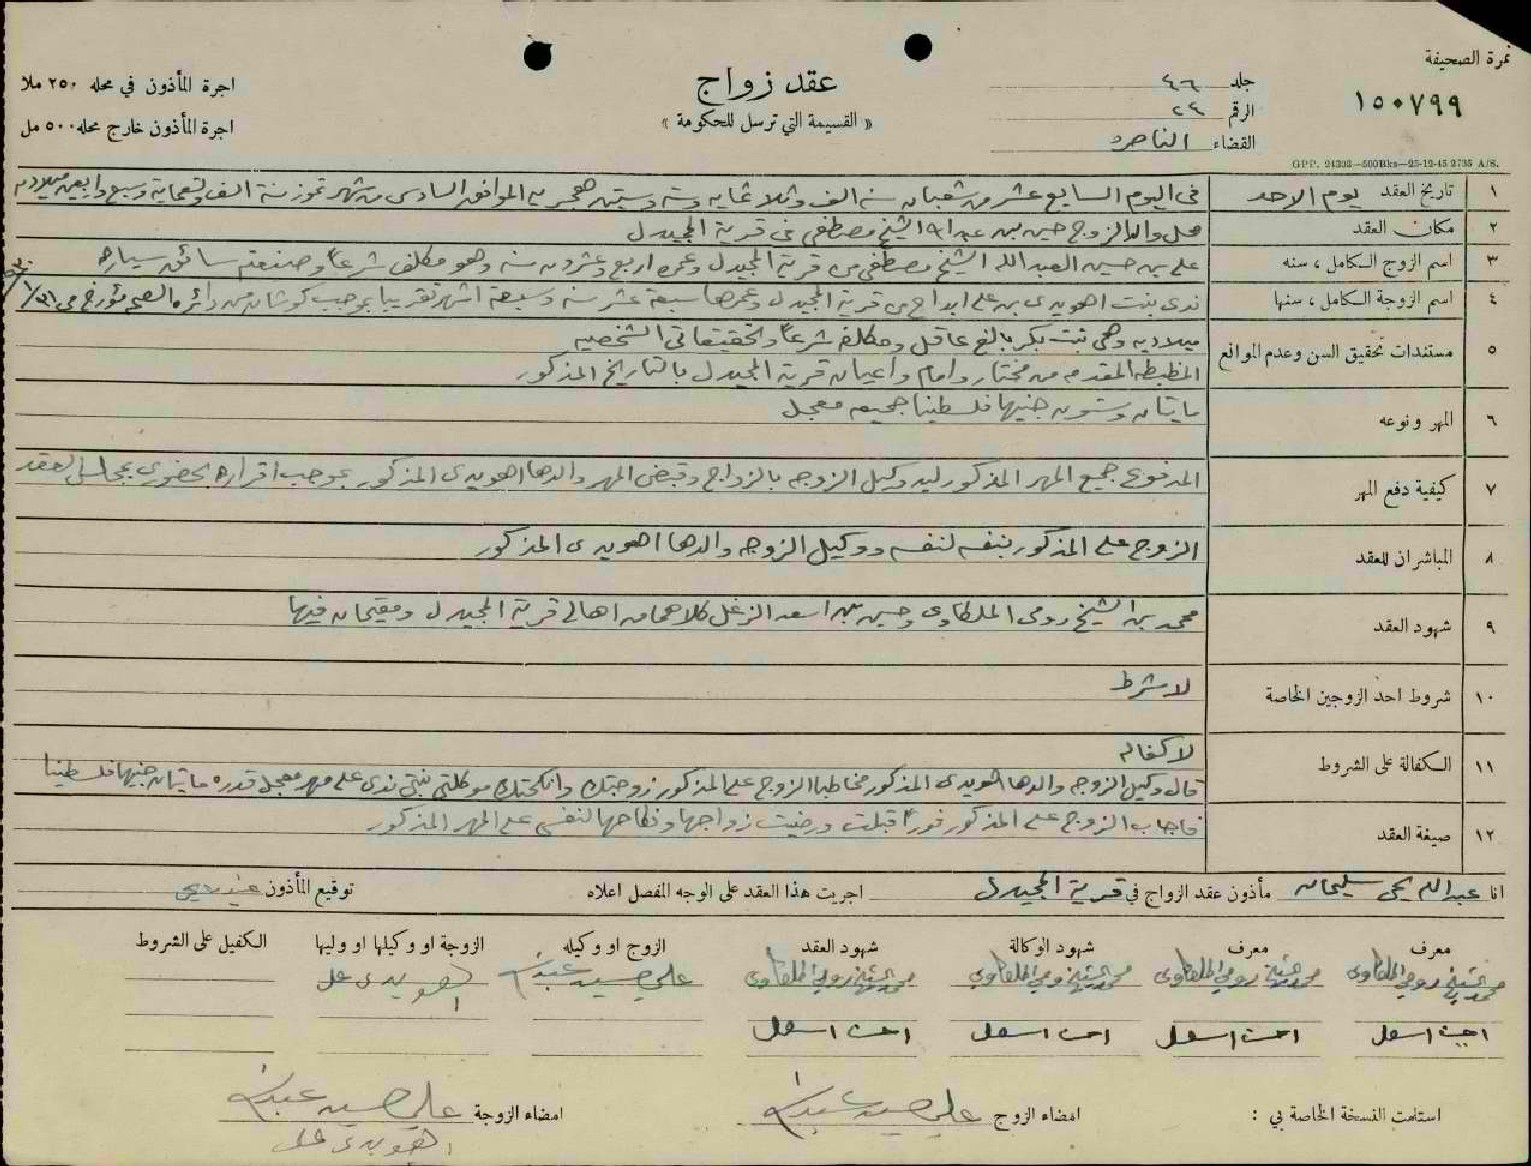 نمرة الصحيفة
١٥٠٧٩٩
جلد ٤٦
الرقم ٢٤
القضاء الناصره
عقد زواج
« القسيمة التي ترسل للحكومة »
اجرة المأذون في محله ٢٥٠ ملا
اجرة المأذون خارج محله ٥٠٠ مل
GPP. 24393—500Bks—25-12-45 2735 A/S.
١ تاريخ العقد يوم الاحد في اليوم السابع عشر من شعبان سنة الف وثلاثماية وستة وستين هجرية الموافق السادس من شهر تموز سنة الف وتسعماية وسبع واربعين ميلاديه
٢ مكان العقد محل والد الزوج حسين بن عبدالله الشيخ مصطفى في قرية المجيدل
٣ اسم الزوج الكامل ، سنه علي بن حسين العبدالله الشيخ مصطفى من قرية المجيدل وعمره اربع وعشرون سنه وهو مكلف شرعاً وصنعته سائق سياره
٤ اسم الزوجة الكامل ، سنها ندى بنت اهويدي بن علي من قرية المجيدل وعمرها سبعة عشر سنه وسبعة اشهر تقريبا بموجب كوشان من دائرة الصحه مؤرخ في
ميلاديه وهي بنت بكر بالغ عاقل ومكلفه شرعاً وتحقيقاتي الشخصيه
٥ مستندات تحقيق السن وعدم الموانع المظبطه المقدمه من مختار وامام واعيان قرية المجيدل بالتاريخ المذكور
٦ المهر ونوعه مايتان وستون جنيها فلسطينيا جميعه معجل
٧ كيفية دفع المهر المدفوع جميع المهر المذكور ليد وكيل الزوجه بالزواج وقبض المهر والدها اهويدي المذكور بموجب اقراره بحضوري بمجلس العقد
٨ المباشران للعقد الزوج علي المذكور بنفسه لنفسه ووكيل الزوجه والدها اهويدي المذكور
٩ شهود العقد محمد بن الشيخ رومي الملطاوي وحسين بن اسعد الزغل كلاهما من اهالي قرية المجيدل ومقيمان فيها
١٠ شروط احد الزوجين الخاصة لا شرط
١١ الكفالة على الشروط لا كفاله
قال وكيل الزوجه والدها اهويدي المذكور مخاطبا الزوج علي المذكور زوجتك وانكحتك موكلتي بنتي ندى على مهر معجل قدره مايتان جنيها فلسطينيا
١٢ صيغة العقد فاجاب الزوج علي المذكور فوراً قبلت ورضيت زواجها ونكاحها لنفسي على المهر المذكور
انا عبدالله يحي سليمان مأذون عقد الزواج في قرية المجيدل اجريت هذا العقد على الوجه المفصل اعلاه توقيع المأذون
معرف معرف شهود الوكالة شهود العقد الزوج او وكيله الزوجة او وكيلها او وليها الكفيل على الشروط
محمد الشيخ رومي الملطاوي محمد الشيخ رومي الملطاوي محمد الشيخ رومي الملطاوي محمد الشيخ رومي الملطاوي علي حسين عبدالله اهويدي علي
استلمت النسخة الخاصة بي : امضاء الزوج علي حسين عبدالله امضاء الزوجة علي حسين عبدالله
اهويدي علي